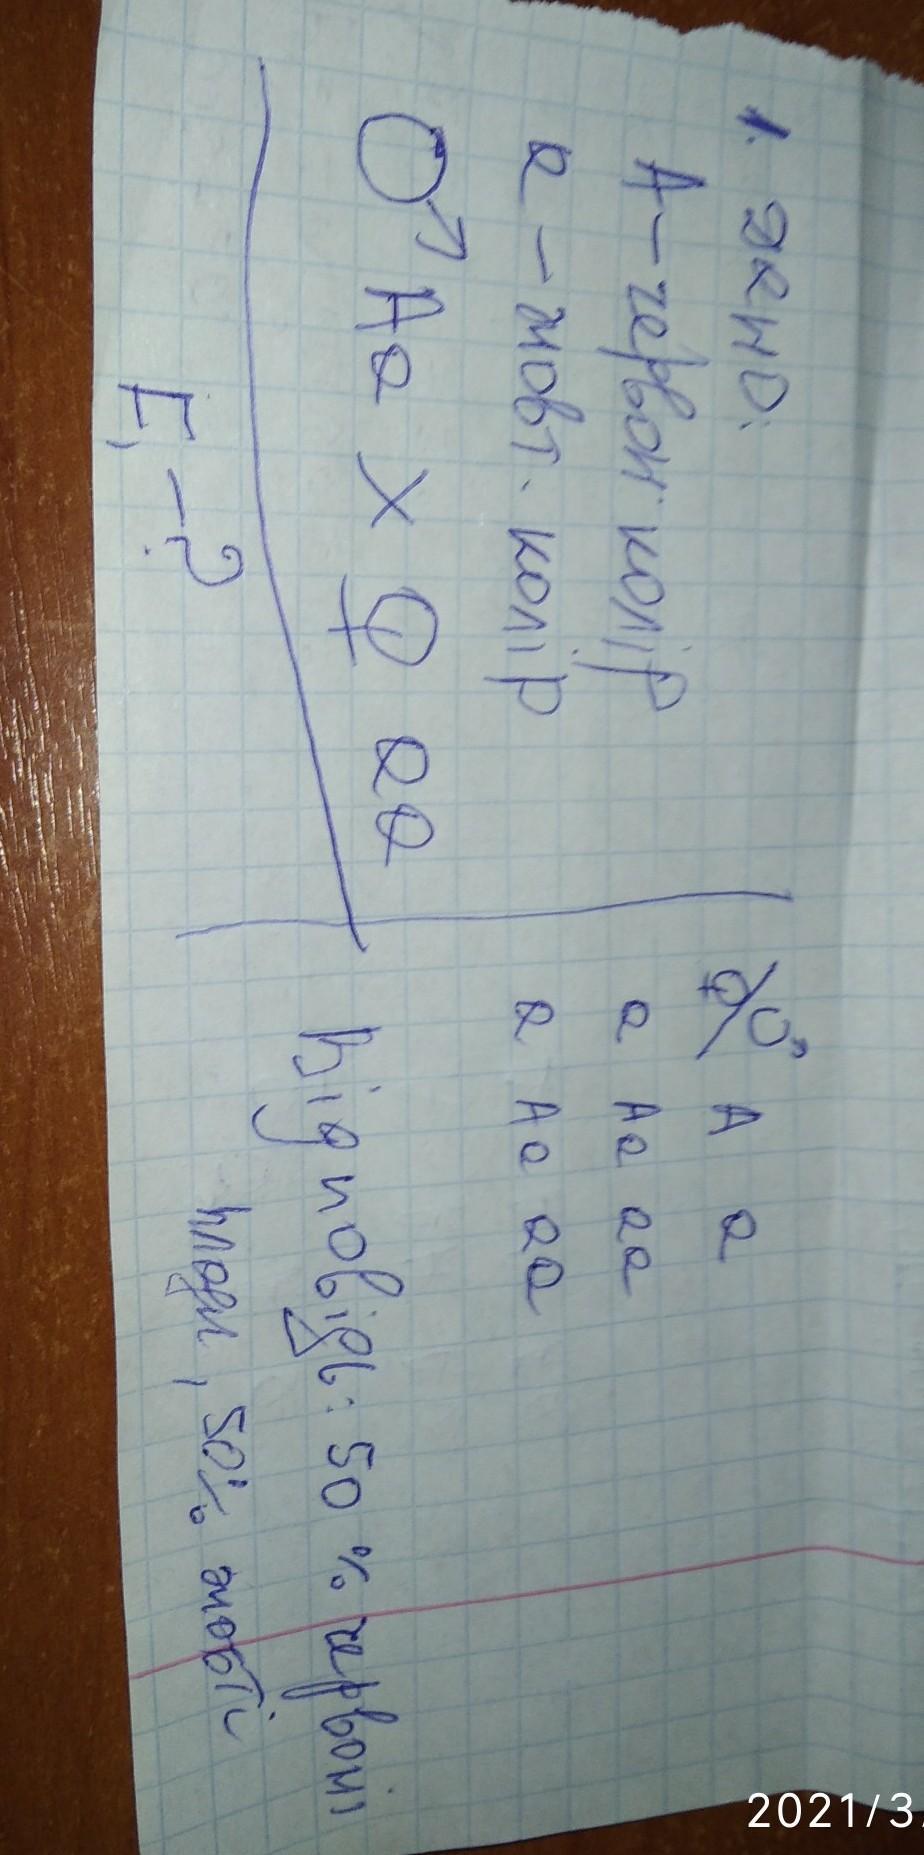 1. Дано:
А - червон. колір
а - жовт. колір
♂ Аа х ♀ аа
F₁ - ?
♀/♂ А а
а Аа аа
а Аа аа
Відповідь: 50 % червоні
плоди, 50% жовті
2021/3/